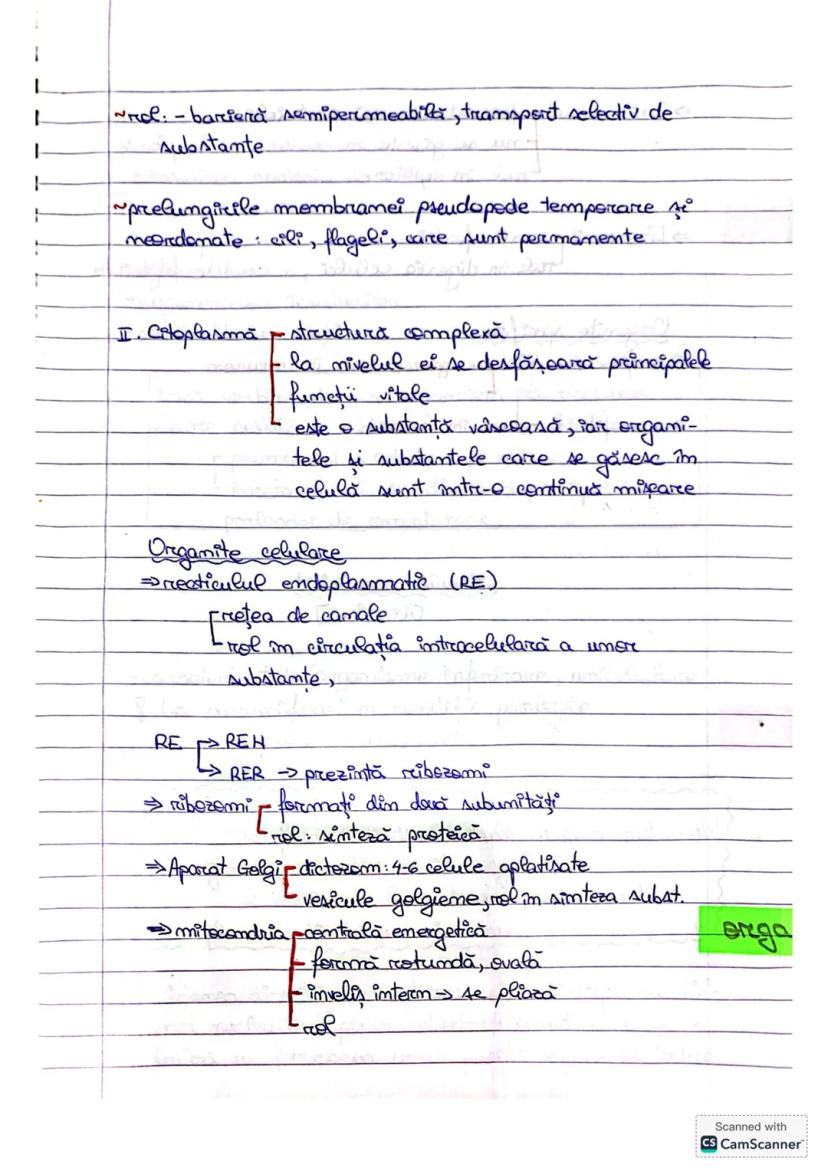 ~rol: - barieră semipermeabilă, transport selectiv de
substanțe
~prelungirile membranei pseudopode temporare și
neordonate : cili, flageli, care sunt permanente
II. Citoplasmă structură complexă
la nivelul ei se desfășoară principalele
funcții vitale
este o substanță vâscoasă, iar organi-
tele și substantele care se găsesc în
celulă sunt într-o continuă mișcare
Organite celulare
⇒ reoticulul endoplasmatic (RE)
rețea de canale
rol în circulația introcelulară a unor
substanțe,
RE → REN
→ RER → prezintă ribozomi
⇒ ribozomi formați din două subunități
rol: sinteză proteică
⇒ Aparat Golgi dictozom: 4-6 celule aplatisate
vezicule golgiene, rol în sinteza subst.
⇒ mitocondria centrală energetică
orga
formă rotundă, ovală
înveliș intern → se pliază
rol
Scanned with
CS CamScanner